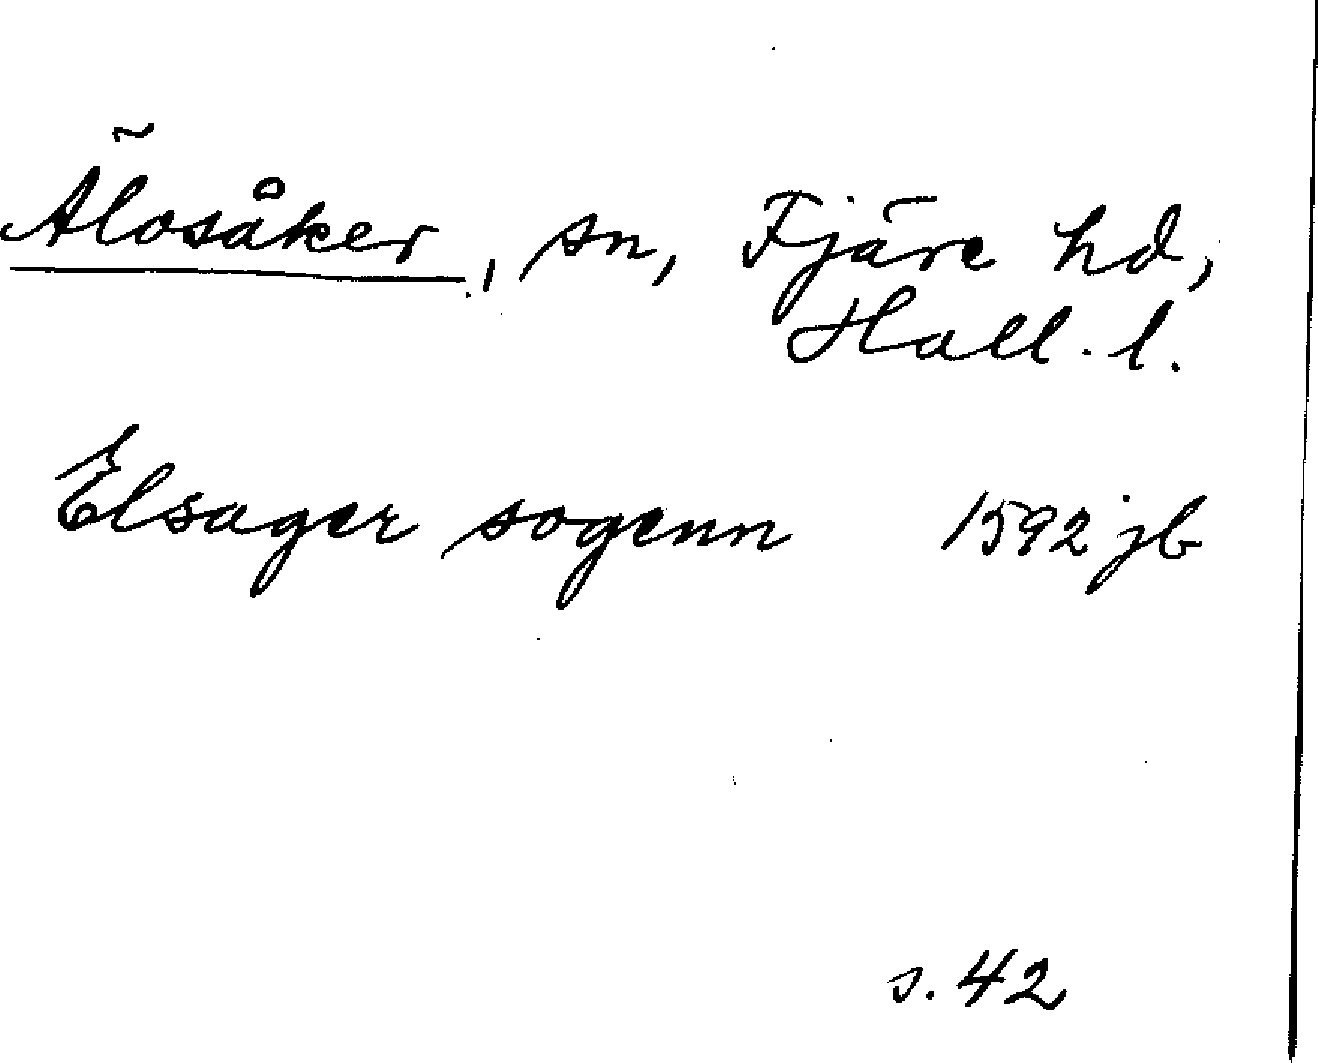 Älvsåker, sn, Fjäre hd,
Hall. l.
Elsager sogenn 1592 jb
s. 42